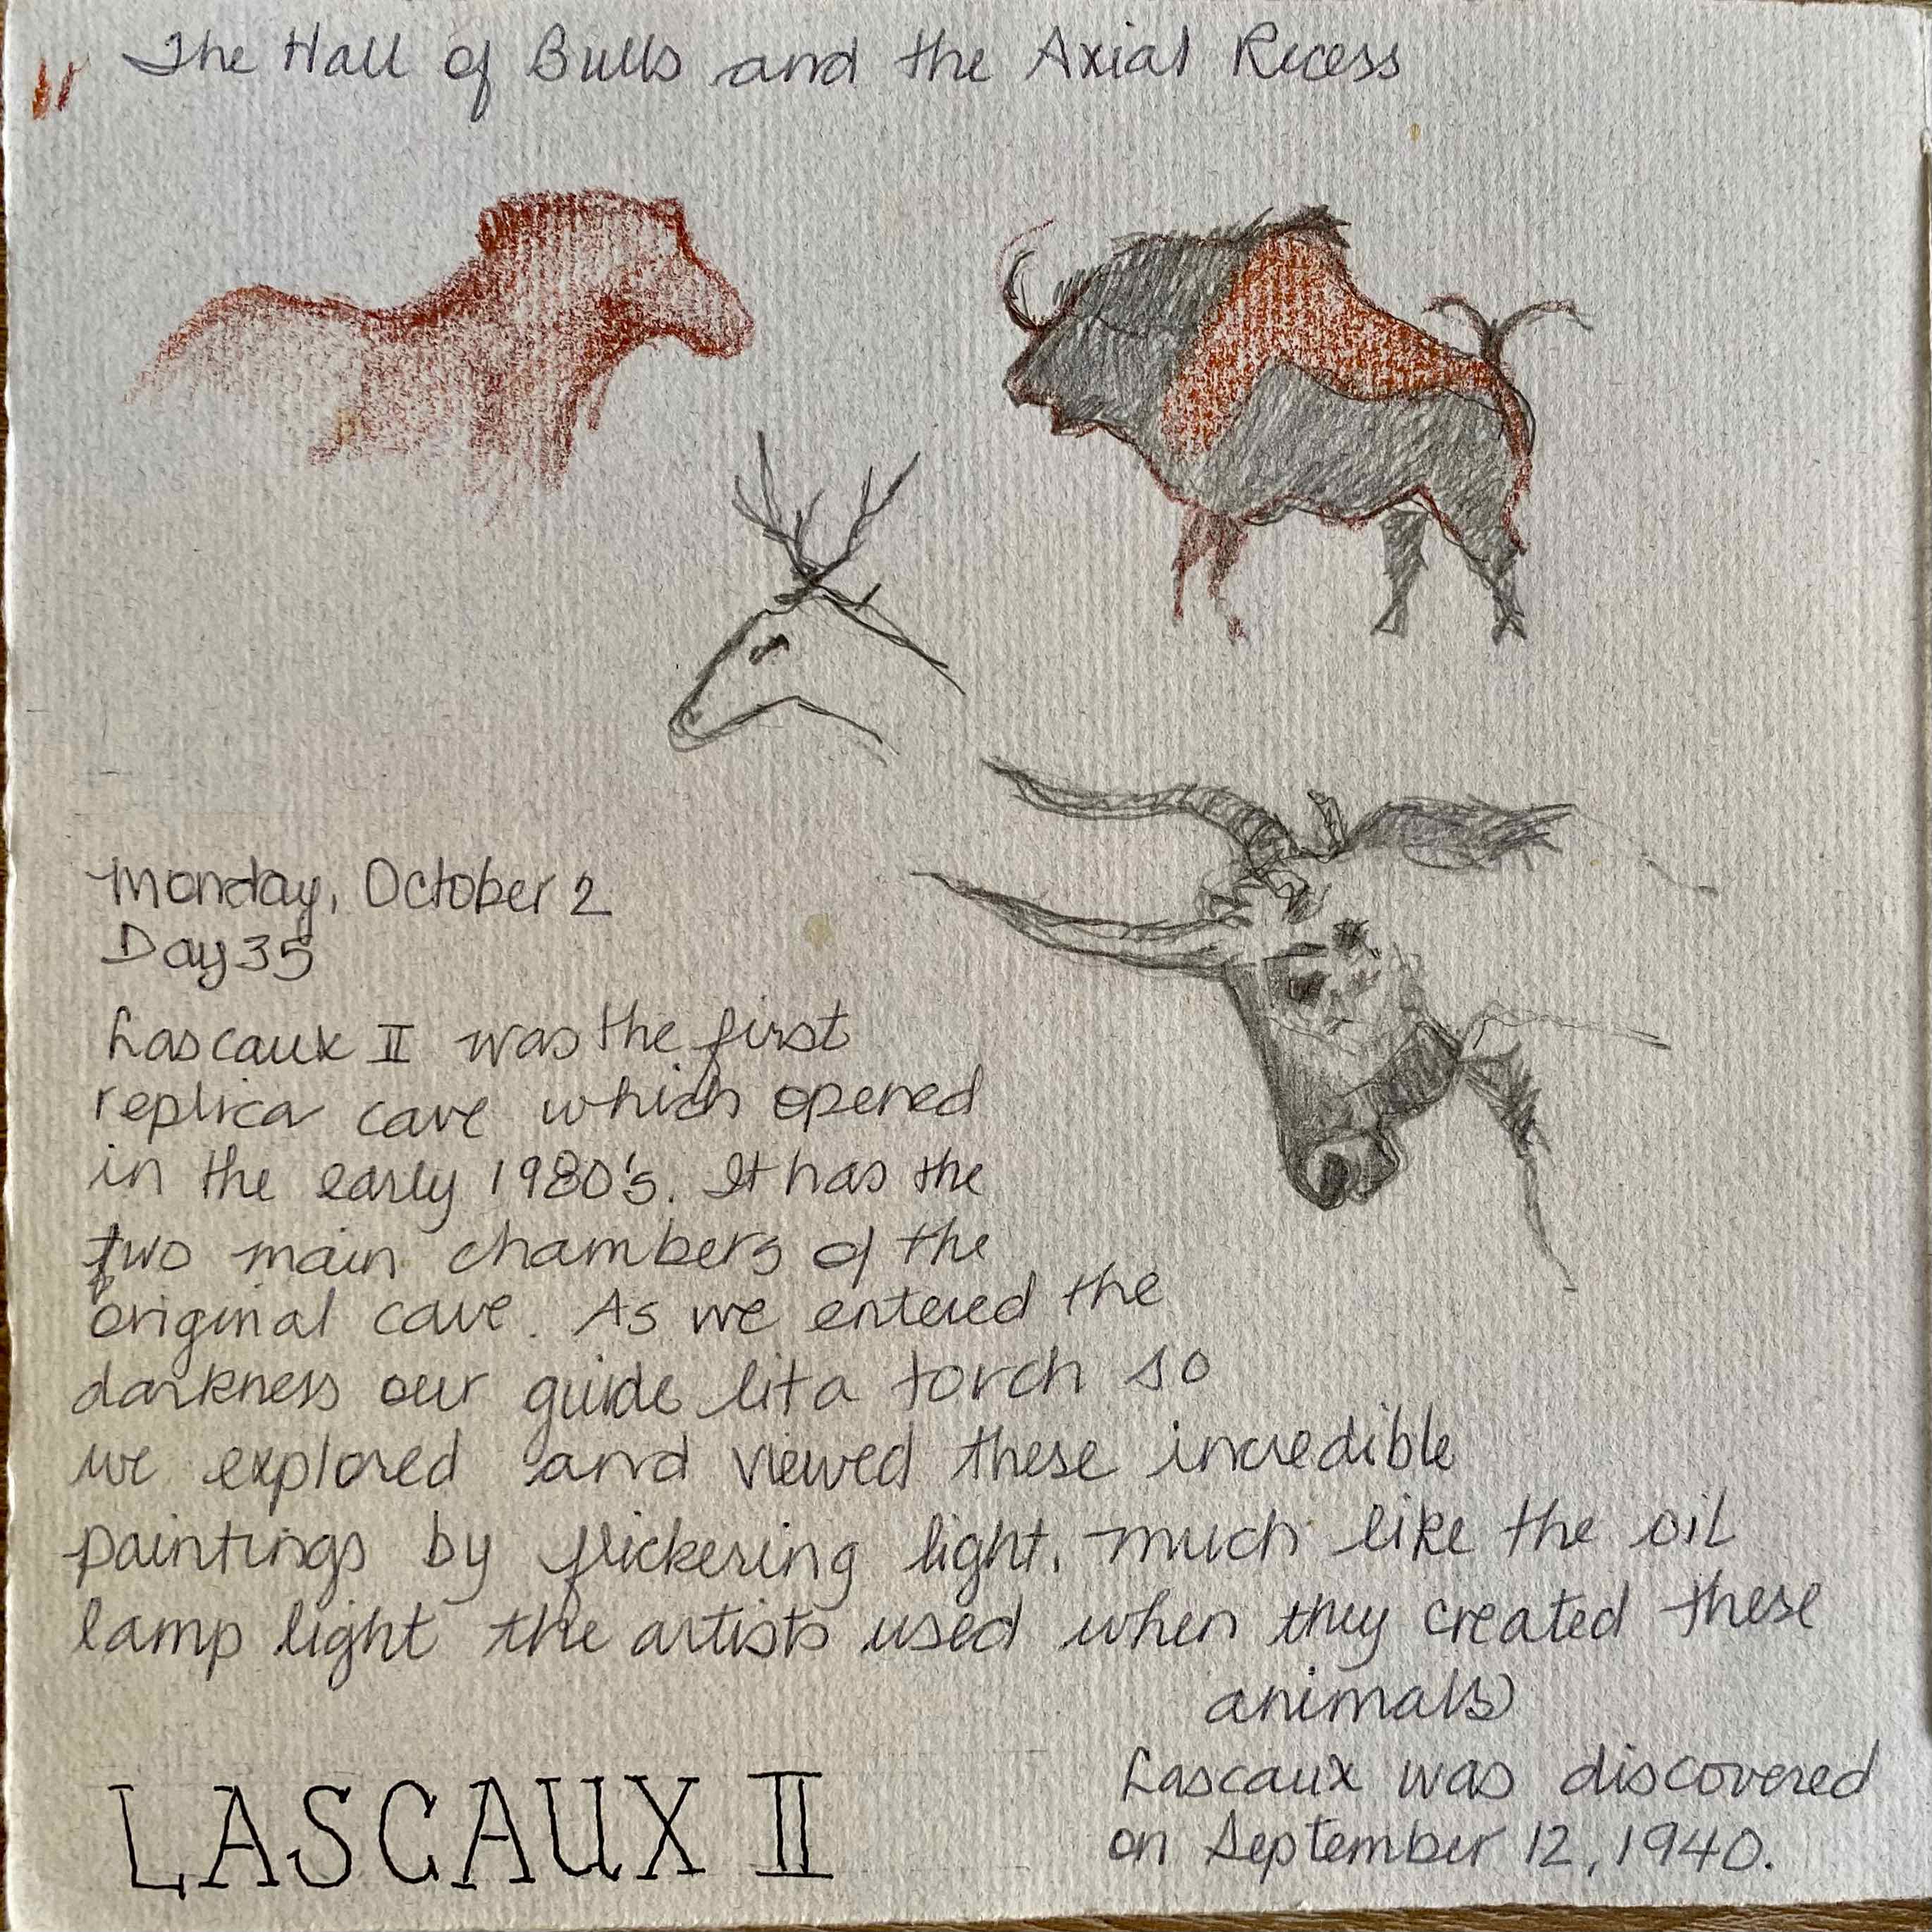 The Hall of Bulls and the Axial Recess
Monday, October 2
Day 35
Lascaux II was the first
replica cave which opened
in the early 1980's. It has the
two main chambers of the
original cave. As we entered the
darkness our guide lit a torch so
we explored and viewed these incredible
paintings by flickering light, much like the oil
lamp light the artists used when they created these
animals
Lascaux was discovered
on September 12, 1940.
LASCAUX II